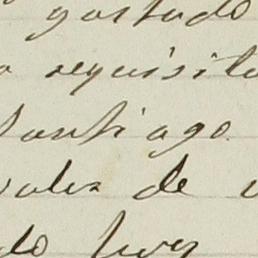 gastado
o requisito
Santiago
vales de
do Juez